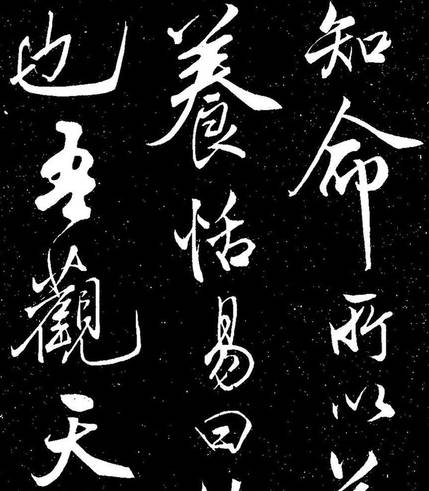 知命所以
養恬易曰
也吾觀天